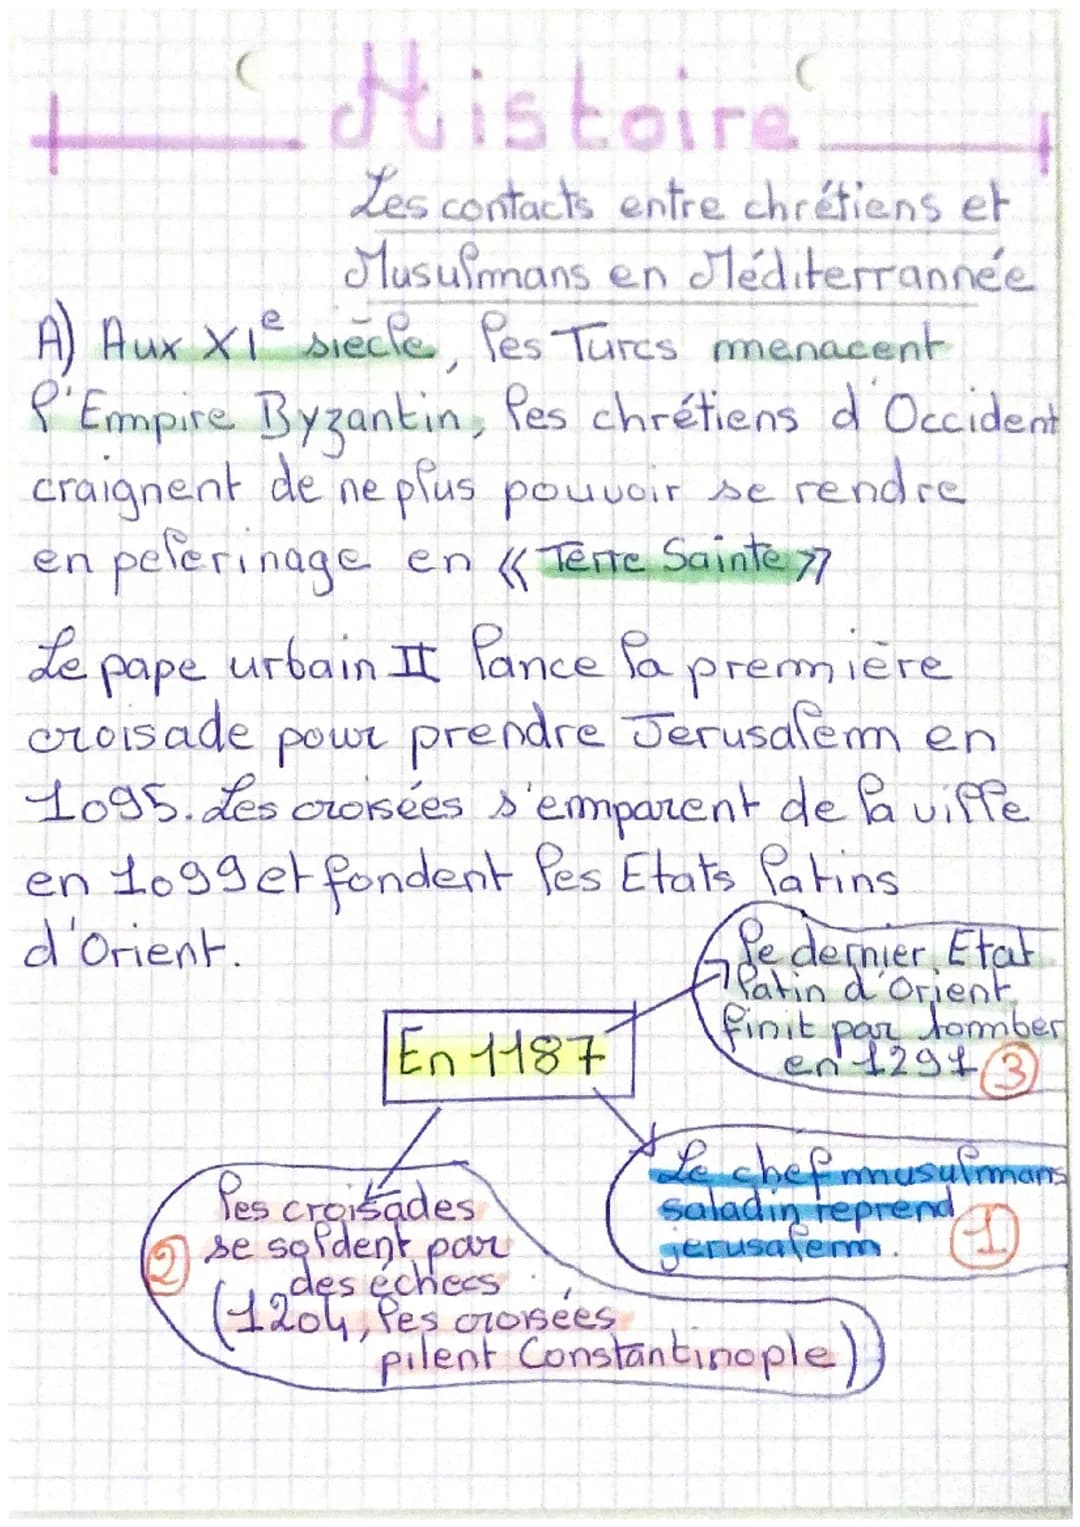 Histoire
Les contacts entre chrétiens et
Musulmans en Méditerrannée
A) Aux XIe siècle, les Turcs menacent
l'Empire Byzantin, les chrétiens d'Occident
craignent de ne plus pouvoir se rendre
en pelerinage en « Terre Sainte »
Le pape urbain II lance la première
croisade pour prendre Jerusalem en
1095. Les croisées s'emparent de la ville
en 1099 et fondent les Etats latins
d'Orient.
le dernier Etat
latin d'Orient
finit par tomber
en 1291 3
En 1187
Le chef musulmans
saladin reprend
jerusalem. 1
les croisades
se soldent par
2 des échecs
(1204, les croisées
pilent Constantinople)